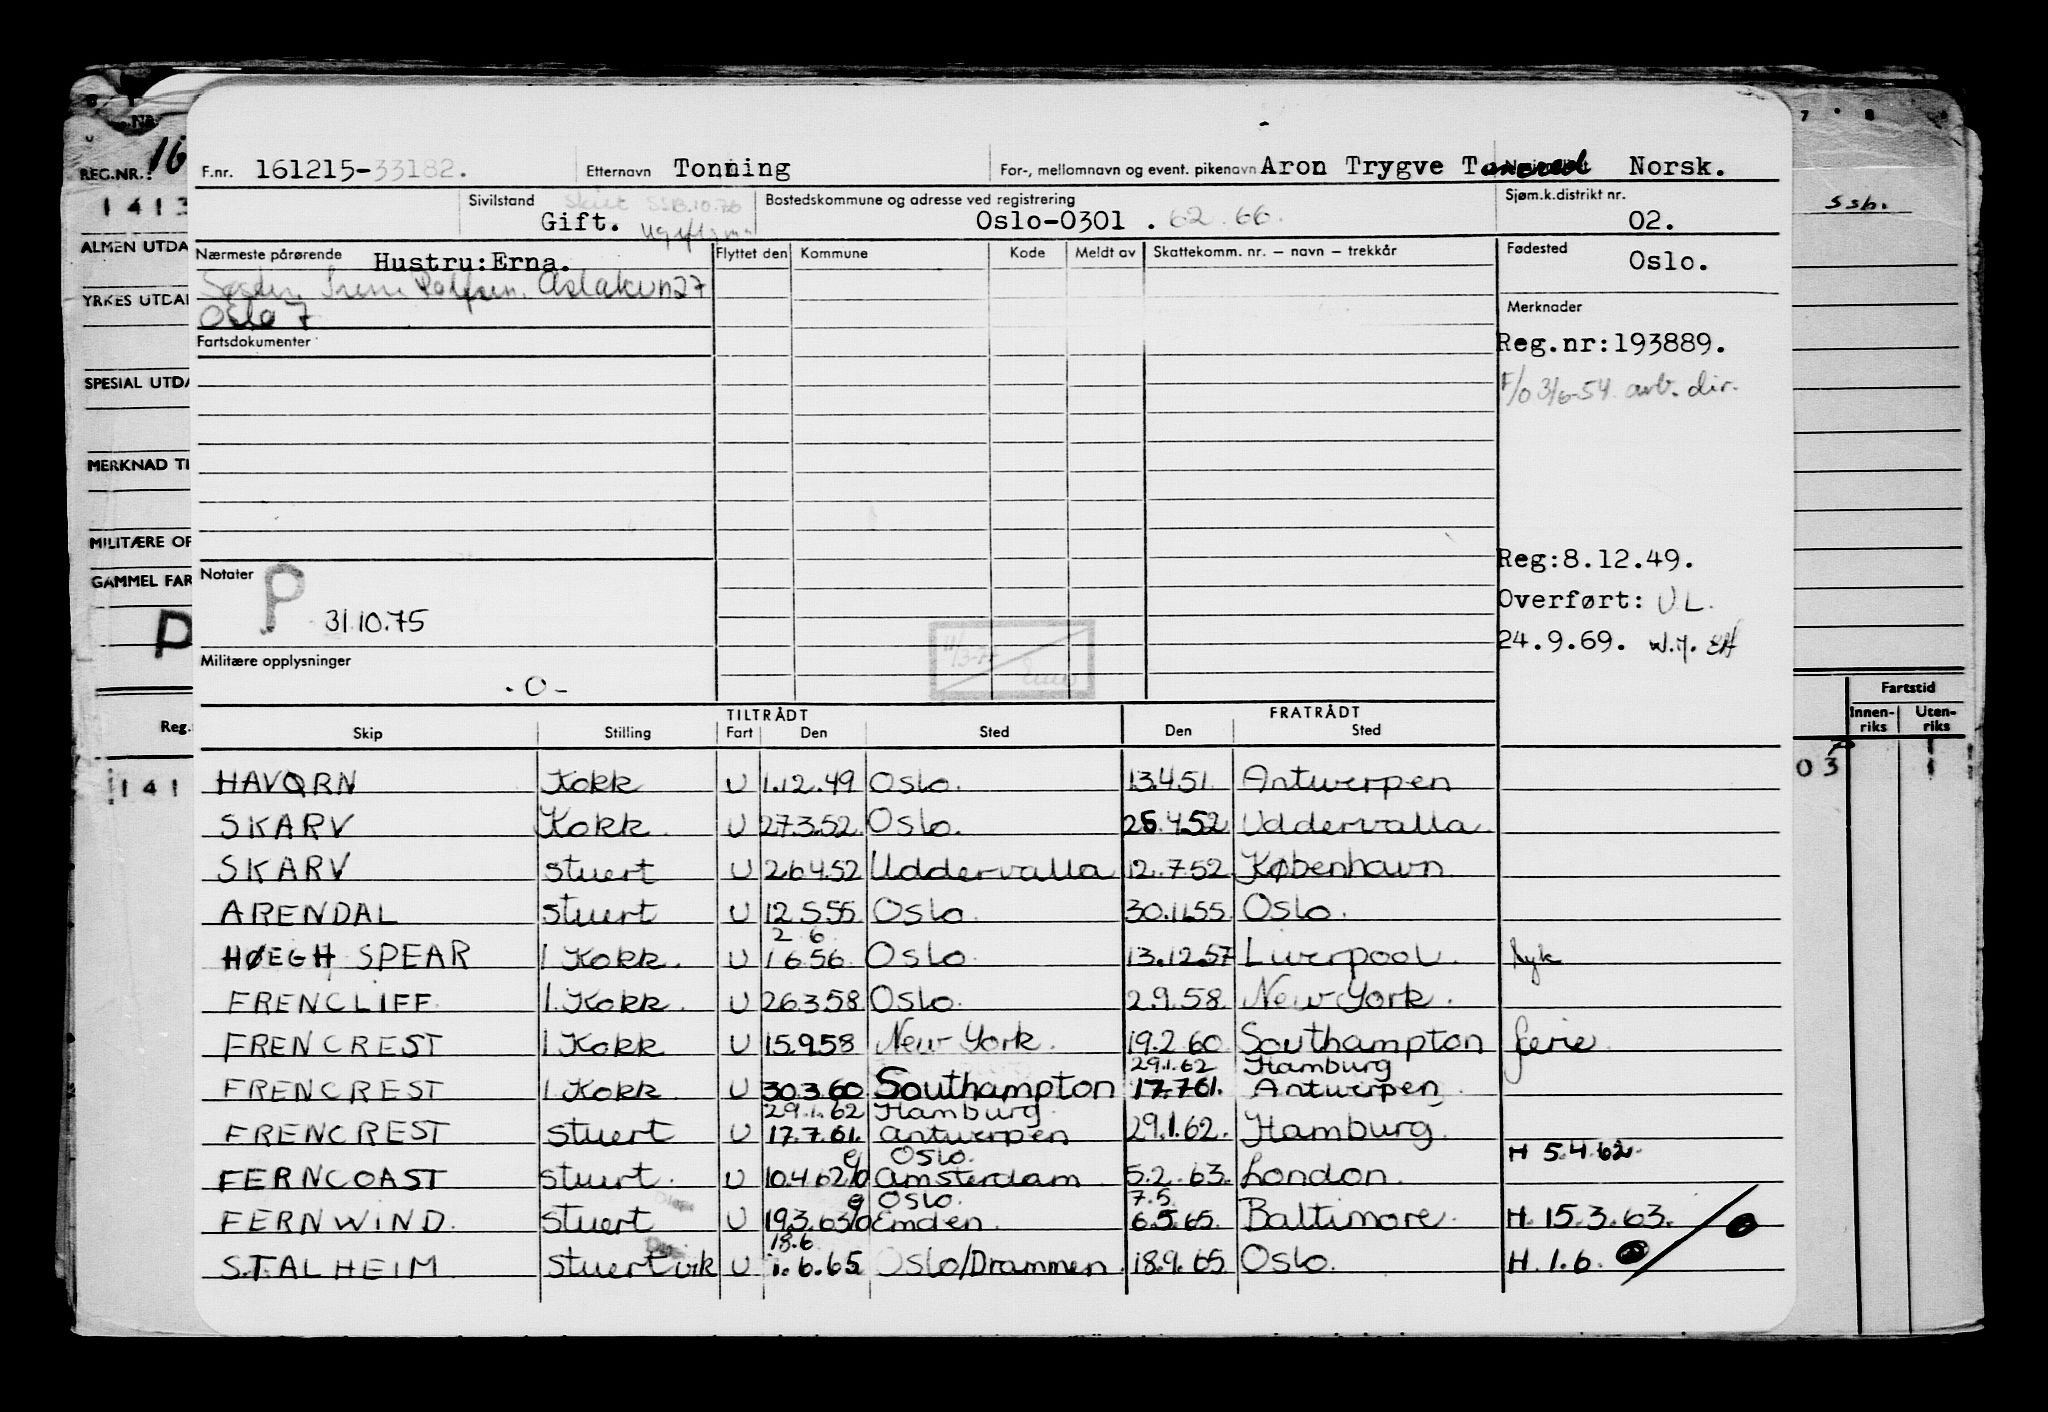 F.nr. 161215-33182. Etternavn Tonning For-, mellomnavn og event. pikenavn Aron Trygve Norsk.
Sivilstand Gift. Bostedskommune og adresse ved registrering Oslo-0301 . 62.66. Sjøm.k.distrikt nr. 02.
Nærmeste pårørende Hustru:Erna. Flyttet den Kommune Kode Meldt av Skattekomm. nr. – navn – trekkår Fødested Oslo.
Oslo 7
Merknader
Fartsdokumenter
Reg.nr:193889.
F/o 3/6-54 arb. dir.
Reg:8.12.49.
Notater P 31.10.75
Overført: U L.
24.9.69.
Militære opplysninger
- 0 -
TILTRÅDT FRATRÅDT
Skip Stilling Fart Den Sted Den Sted
HAVØRN Kokk U 1.12.49 Oslo. 13.4.51. Antwerpen
SKARV Kokk. U 27.3.52. Oslo. 25.4.52 Uddervalla
SKARV stuert U 26.4.52 Uddervalla 12.7.52 København
ARENDAL stuert U 12.5.55 Oslo 30.11.55 Oslo.
2 6
HØEGH SPEAR 1 Kokk. U 1 6 56 Oslo 13.12.57 Liverpool. syk
FRENCLIFF 1. Kokk. U 26.3.58 Oslo. 2.9.58. New York.
FRENCREST 1. Kokk U 15.9.58 New York. 19.2.60 Southampton ferie
29.1.62 Hamburg
FRENCREST 1. Kokk. U 30.3.60 Southampton 17.7.61. Antwerpen
29.1.62 Hamburg.
FRENCREST stuert U 17.7.61. Antwerpen 29.1.62. Hamburg.
Oslo. H 5.4.62
FERNCOAST stuert. U 10.4.62 Amsterdam 5.2.63. London.
Oslo. 7.5
FERNWIND. stuert U 19.3.63 Emden. 6.5.65. Baltimore. H. 15.3.63.
18.6
STALHEIM stuert vik U 1.6.65 Oslo/Drammen. 18.9.65 Oslo. H. 1.6.
REG.NR.: 16
1 4 1 3
ALMEN UTDA
YRKES UTDA
SPESIAL UTDA
MERKNAD TI
MILITÆRE OP
GAMMEL FAR
P
Reg.
1 4 1
Ssb.
Fartstid
Innen-riks Uten-riks
0 3